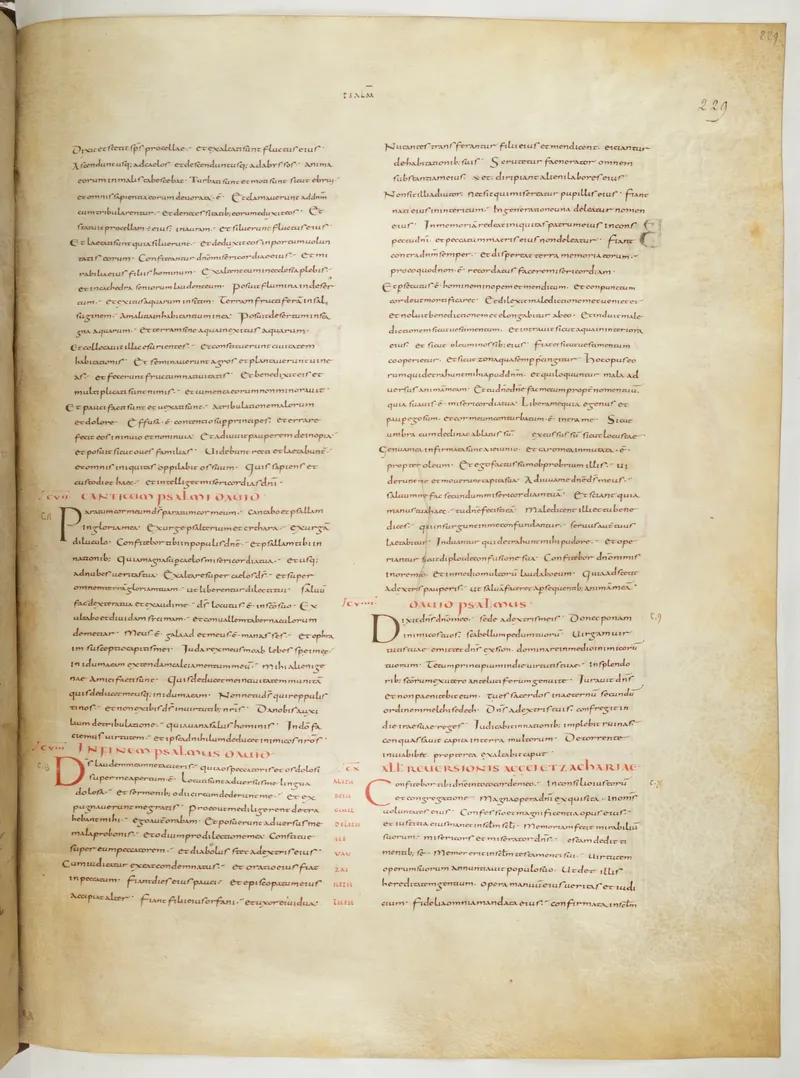 PSALM
229
Dixit et stetit sps procellae · et exaltati sunt fluctus eius ·
Ascendunt usq; ad caelos et descendunt usq; ad abyssos · anima
eorum in malis tabescebat · Turbati sunt et moti sunt sicut ebrius
et omnis sapientia eorum deuorata · ē · Et clamauerunt ad dnm
cum tribularentur · et de necessitatib; eorum eduxit eos · Et
statuit procellam eius in auram · et siluerunt fluctus eius
Et laetati sunt quia siluerunt · et deduxit eos in portum uolun
tatis eorum · Confiteantur dno misericordiae eius · et mi
rabilia eius filiis hominum · Exaltent eum in ecclesia plebis ·
et in cathedra seniorum laudent eum · Posuit flumina in deser
tum · et exitus aquarum in sitim · Terram fructiferam in sal
suginem · a malitia inhabitantium in ea · Posuit desertum in sta
gna aquarum · et terram sine aqua in exitus aquarum ·
Et collocauit illic esurientes · et constituerunt ciuitatem
habitationis · Et seminauerunt agros et plantauerunt uine
as · et fecerunt fructum natiuitatis · Et benedixit eis et
multiplicati sunt nimis · et iumenta eorum non minorauit ·
Et pauci facti sunt et uexati sunt · a tribulatione malorum
et dolore · Effusa · ē · contentio sup principes · et errare
fecit eos in inuio et non in uia · Et adiuuit pauperem de inopia
et posuit sicut oues familias · Uidebunt recti et laetabunt
et omnis iniquitas oppilabit os suum · Quis sapiens et
custodiet haec · et intelleget misericordias dni ·
CVII CANTICUM PSALMI DAVID
Paratum cor meum ds paratum cor meum · cantabo et psallam
in gloria mea · Exurge psalterium et cithara · exurgam
diluculo · Confitebor tibi in populis dne · et psallam tibi in
nationib; Quia magna sup caelos misericordia tua · et usq;
ad nubes ueritas tua · Exaltare super caelos ds · et super
omnem terram gloria tua · ut liberentur dilecti tui · saluum
fac dextera tua et exaudi me · ds locutus ē in sco suo · Ex
ultabo et diuidam sicimam · et conuallem tabernaculorum
demetiar · Meus ē galaad et meus ē manasses · et ephra
im susceptio capitis mei · Iuda rex meus moab lebes spei meae
in idumaeam extendam calciamentum meum · mihi alienige
nae amici facti sunt · Quis deducet me in ciuitatem munitam
quis deducet me usq; in idumaeam · Nonne tu ds qui reppulis
ti nos · et non exibis ds in uirtutib; nris · Da nobis auxi
lium de tribulatione · quia uana salus hominis · In do fa
ciemus uirtutem · et ipse ad nihilum deducet inimicos nros ·
CVIII IN FINEM PSALMUS DAVID
Ds laudem meam ne tacueris · quia os peccatoris et os dolosi
super me apertum ē · Locuti sunt aduersum me lingua
dolosa · et sermonib; odii circumdederunt me · et ex
pugnauerunt me gratis · Pro eo ut me diligerent detra
hebant mihi · ego autem orabam · Et posuerunt aduersus me
mala pro bonis · et odium pro dilectione mea · Constitue
super eum peccatorem · et diabolus stet a dextris eius ·
Cum iudicatur exeat condemnatus · et oratio eius fiat
in peccatum · Fiant dies eius pauci · et episcopatum eius
accipiat alter · Fiant filii eius orfani · et uxor eius uidua ·
Nutantes transferantur filii eius et mendicent · eiciantur
de habitationib; suis · Scrutetur faenerator omnem
substantiam eius · et diripiant alieni labores eius ·
Non sit illi adiutor · nec sit qui misereatur pupillis eius · fiant
nati eius in interitum · In generatione una deleatur nomen
eius · In memoriam redeat iniquitas patrum eius in cons
pectu dni · et peccatum matris eius non deleatur · Fiant
contra dnm semper · et dispereat de terra memoria eorum ·
pro eo quod non · ē · recordatus facere misericordiam ·
Et persecutus ē hominem inopem et mendicum · et conpunctum
corde mortificare · Et dilexit maledictionem et ueniet ei
et noluit benedictionem et elongabitur ab eo · Et induit male
dictionem sicut uestimentum · et intrauit sicut aqua in interiora
eius · et sicut oleum in ossib; eius · Fiat ei sicut uestimentum
cooperietur · et sicut zona qua semp cingitur · Hoc opus eo
rum qui detrahunt mihi apud dnm · et qui loquuntur mala ad
uersus animam meam · Et tu dne dne fac mecum propter nomen tuum ·
quia suauis ē misericordia tua · Libera me quia egenus et
pauper ego sum · et cor meum conturbatum ē intra me · Sicut
umbra cum declinat ablatus sum · excussus sum sicut locustae
Genua mea infirmata sunt a ieiunio · et caro mea inmutata · ē ·
propter oleum · Et ego factus sum obprobrium illis · ui
derunt me et mouerunt capita sua · Adiuua me dne ds meus ·
saluum me fac secundum misericordiam tuam · Et sciant quia
manus tua haec · et tu dne fecisti eam · Maledicent illi et tu bene
dices · qui insurgunt in me confundantur · seruus autem tuus
laetabitur · Induantur qui detrahunt mihi pudore · et ope
riantur sicut diploide confusione sua · Confitebor dno nimis
in ore meo · et in medio multorum laudabo eum · Quia adstetit
a dextris pauperis · ut saluam faceret a persequentib; animam meam ·
CVIIII DAVID PSALMUS
Dixit dns dno meo · sede a dextris meis · Donec ponam
inimicos tuos · scabellum pedum tuorum · Uirgam uir
tutis tuae emittet dns ex sion · dominare in medio inimicorum
tuorum · Tecum principium in die uirtutis tuae · in splendo
rib; scorum ex utero ante luciferum genui te · Iurauit dns
et non paenitebit eum · tu es sacerdos in aeternum secundum
ordinem melchisedech · Dns a dextris tuis · confregit in
die irae suae reges · Iudicabit in nationib; implebit ruinas ·
conquassauit capita in terra multorum · De torrente
in uia bibet · propterea exaltabit caput ·
CX ALL REUERSIONIS AGGEI ET ZACHARIAE
Confitebor tibi dne in toto corde meo · In consilio iustorum
et congregatione · Magna opera dni exquisita · in omnes
uoluntates eius · Confessio et magnificentia opus eius ·
et iustitia eius manet in sclm scli · Memoriam fecit mirabilium
suorum · misericors et miserator dns · escam dedit ti
mentib; se · Memor erit in sclm testamenti sui · Uirtutem
operum suorum annuntiauit populo suo · Ut det illis
hereditatem gentium · opera manuum eius ueritas et iudi
cium · Fidelia omnia mandata eius · confirmata in sclm
ALEPH
BETH
GIMEL
DELETH
HE
VAU
ZAI
HETH
TETH